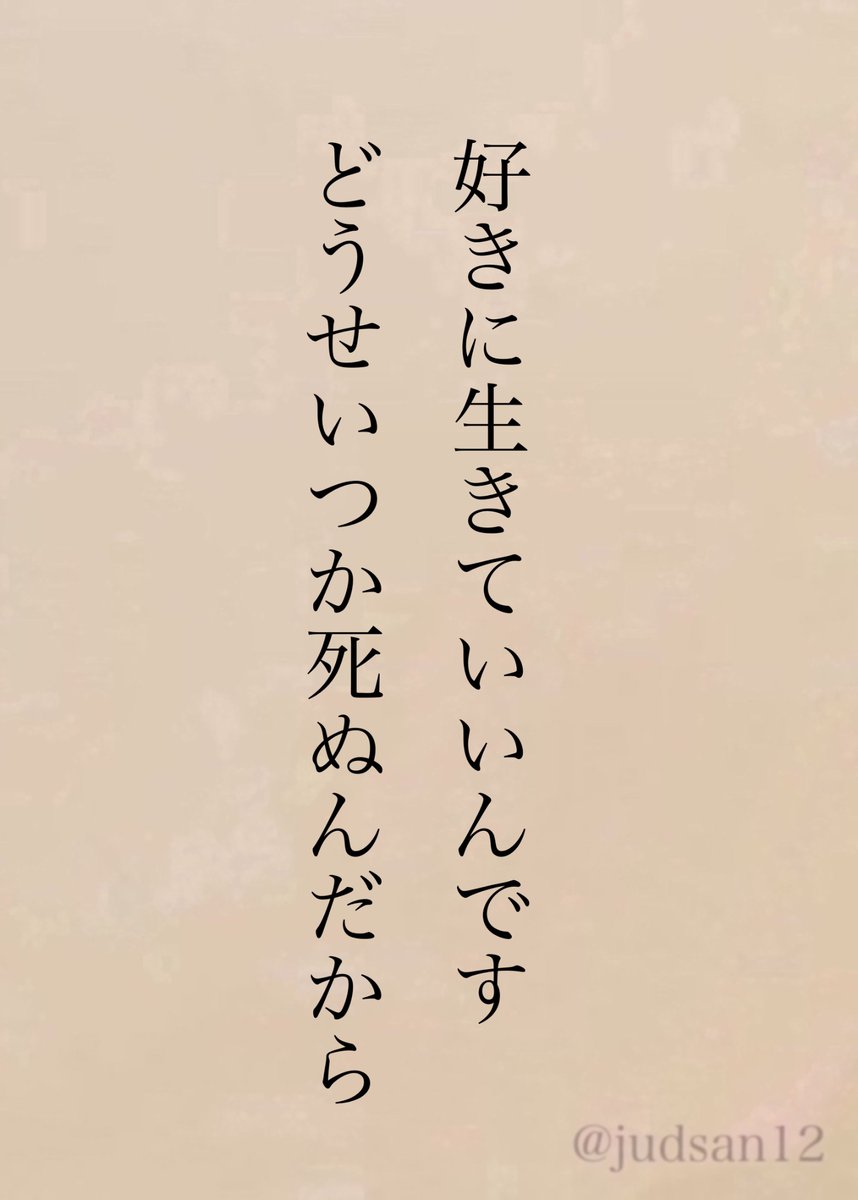 好きに生きていいんです
どうせいつか死ぬんだから
@judsan12